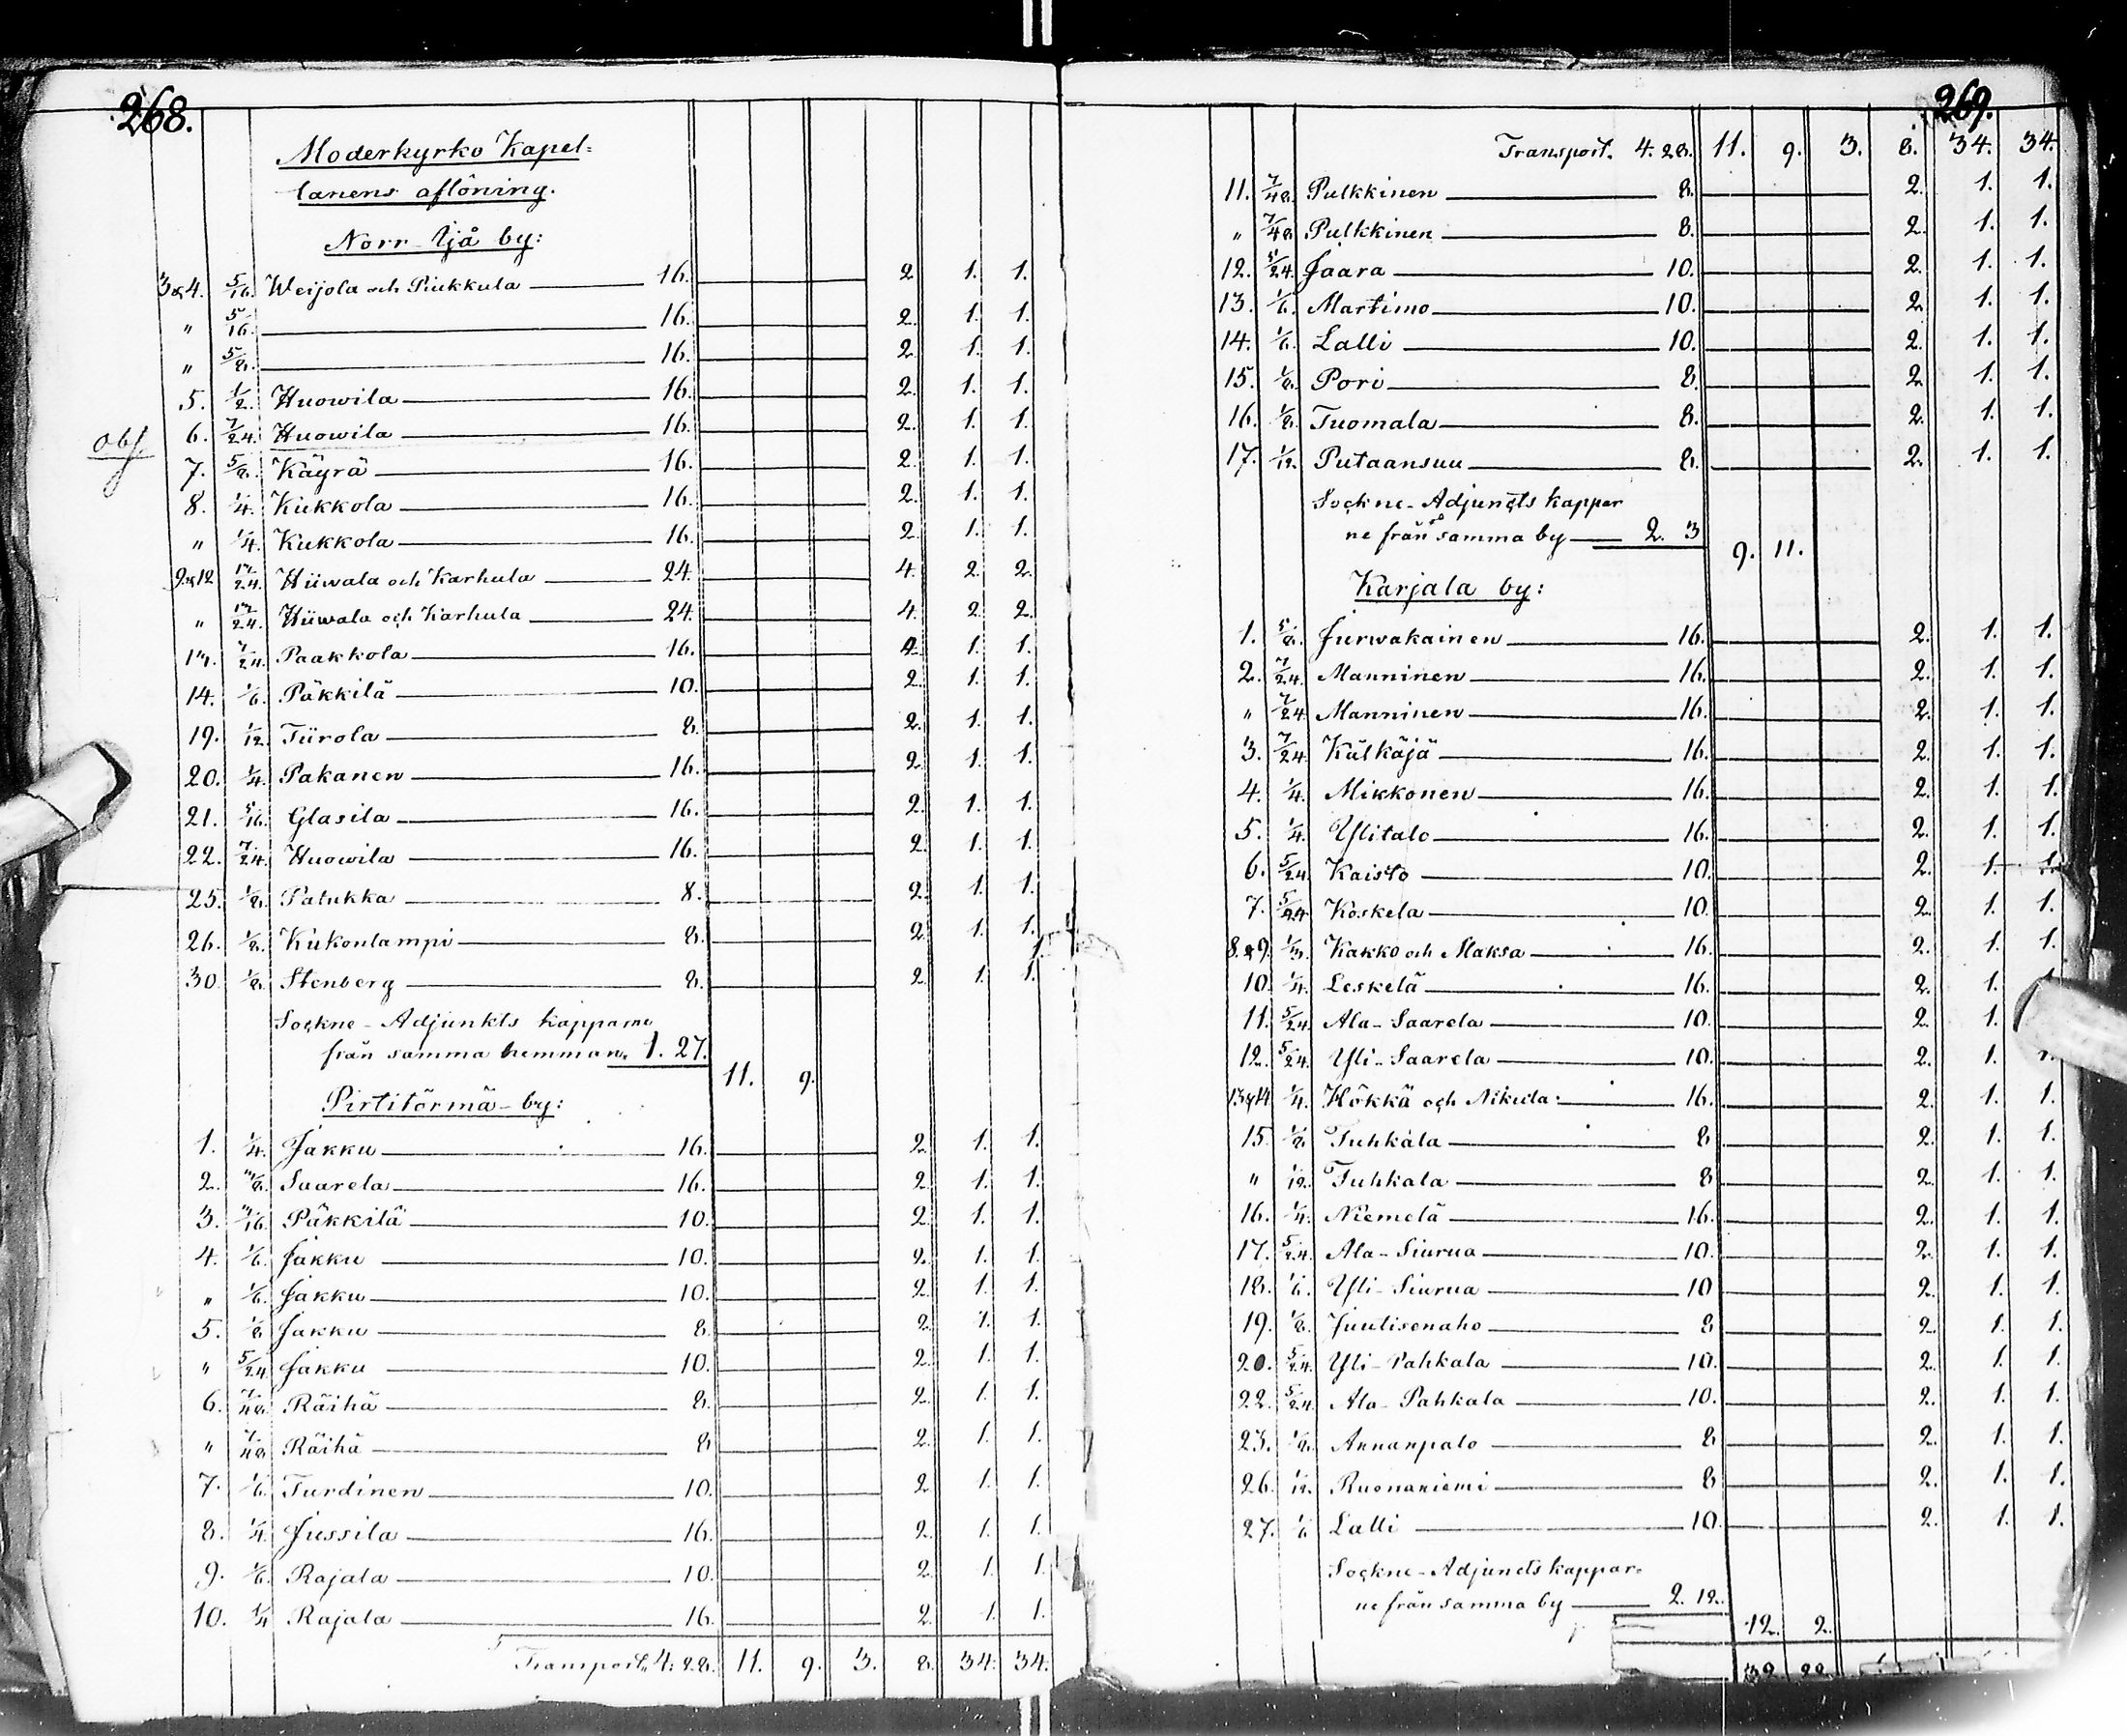 268.
Moderkyrko Kapel=
lanens aflöning.
Norr-Ijå by:
3&4. 5/16. Weijola och Piukkula 16. 2 1. 1.
" 5/16. 16. 2. 1. 1.
" 5/8. 16. 2 1. 1.
5. 1/2. Huowila 16. 2. 1. 1.
Obs. 6. 7/24. Huowila 16. 2. 1. 1.
7. 5/8. Käyrä 16. 2. 1. 1.
8. 1/4. Kukkola 16. 2. 1. 1.
" 1/4. Kukkola 16. 2 1. 1.
9&12 17/24. Hiiwala och Karhula 24. 4. 2. 2.
" 17/24. Hiiwala och Karhula 24. 4. 2 2.
7/24. Paakkola 16. 2. 1. 1.
14. 1/6. Päkkilä 10. 2. 1. 1.
19. 1/12. Tiirola 8. 2. 1. 1.
20. 1/4. Pakanen 16. 2. 1. 1.
21. 5/16. Glasila 16. 2. 1. 1.
22. 7/24. Huowila 16. 2. 1. 1.
25. 1/8. Patukka 8. 2. 1. 1.
26. 1/8. Kukonlampi 8. 2. 1. 1.
30. 1/8. Stenberg 8. 2. 1. 1.
Sockne-Adjunkts kapparne
från samma hemman. 1. 27.
11. 9.
Pirtitörmä-by:
1. 1/4. Jakku 16. 2. 1. 1.
2. 3/8. Saarela 16. 2. 1. 1.
3. 3/16. Päkkilä 10. 2. 1. 1.
4. 1/6. Jakku 10. 2. 1. 1.
" 1/6. Jakku 10. 2. 1. 1.
5. 1/8 Jakku 8. 2. 1. 1.
" 5/24. Jakku 10. 2. 1. 1.
6. 7/48. Räihä 8. 2. 1. 1.
" 7/48 Räihä 8 2. 1. 1.
7. 1/6. Turdinen 10. 2 1. 1.
8. 1/4. Jussila 16. 2. 1. 1.
9. 1/6. Rajala 10. 2 1. 1.
10. 1/4 Rajala 16. 2. 1. 1.
Transport. 4. 28. 11. 9. 3. 8. 34. 34.
269.
Transport. 4. 28. 11. 9. 3. 8. 34. 34.
11. 7/48. Pulkkinen 8. 2. 1. 1.
" 7/48 Pulkkinen 8. 2. 1. 1.
12. 5/24. Jaara 10. 2. 1. 1.
13. 1/6. Martimo 10. 2. 1. 1.
14. 1/6. Lalli 10. 2. 1. 1.
15. 1/8. Pori 8. 2 1. 1.
16. 1/8. Tuomala 8. 2. 1. 1.
17. 1/12. Putaansuu 8. 2. 1. 1.
Sockne-Adjuncts kappar
ne från samma by 2. 3
9. 11.
Karjala by:
1. 5/8. Jurwakainen 16. 2. 1. 1.
2. 7/24. Manninen 16. 2. 1. 1.
" 7/24 Manninen 16. 2. 1. 1.
3. 7/24 Kälkäjä 16. 2. 1. 1.
4. 1/4. Mikkonen 16. 2. 1. 1.
5. 1/4. Ylitalo 16. 2. 1. 1.
6. 5/24. Kaisto 10. 2. 1. 1.
7. 5/24. Koskela 10. 2. 1. 1.
8.&9. 1/3. Kakko och Maksa 16. 2. 1. 1.
10. 1/4. Leskelä 16. 2. 1.
11. 5/24. Ala-Saarela 10. 2. 1.
12. 5/24. Yli-Saarela 10. 2. 1. 1.
13&14 1/4. Hökkä och Nikula: 16. 2. 1. 1.
15. 1/8. Tuhkala 8 2. 1. 1.
" 1/12. Tuhkala 8 2. 1. 1.
16. 1/4. Niemelä 16. 2. 1. 1.
17. 5/24. Ala-Siurua 10. 2. 1. 1.
18. 1/6. Yli-Siurua 10 2. 1. 1.
19. 1/8. Juutisenaho 8 2. 1. 1.
20. 5/24. Yli-Pahkala 10. 2. 1. 1.
22. 5/24. Ala-Pahkala 10. 2. 1. 1.
23. 1/8. Annanpalo 8 2. 1. 1.
26. 1/12. Ruonaniemi 8 2. 1. 1.
27. 1/6 Lalli 10. 2. 1. 1.
Sockne-Adjuncts kappar-
ne från samma by 2. 12.
12. 2.
32 22